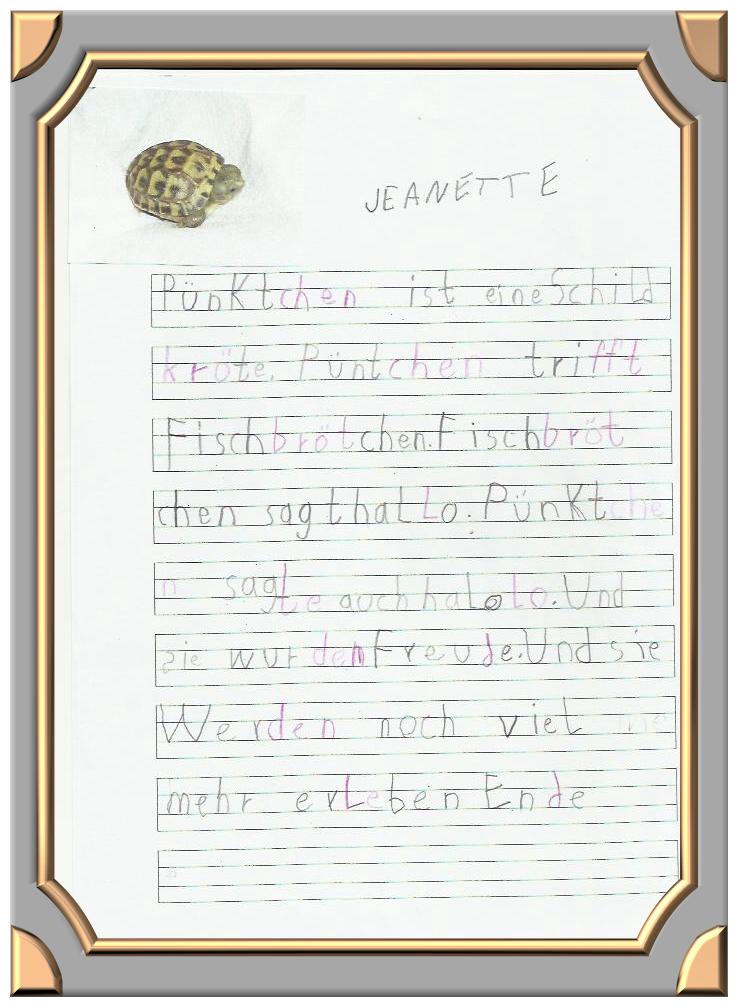 JEANETTE
Pünktchen ist eine Schild
kröte. Püntchen trifft
Fischbrötchen. Fischbröt
chen sagt hallo. Pünktche
n sagte auch halolo. Und
sie wurden Freude. Und sie
Werden noch viel
mehr erleben Ende